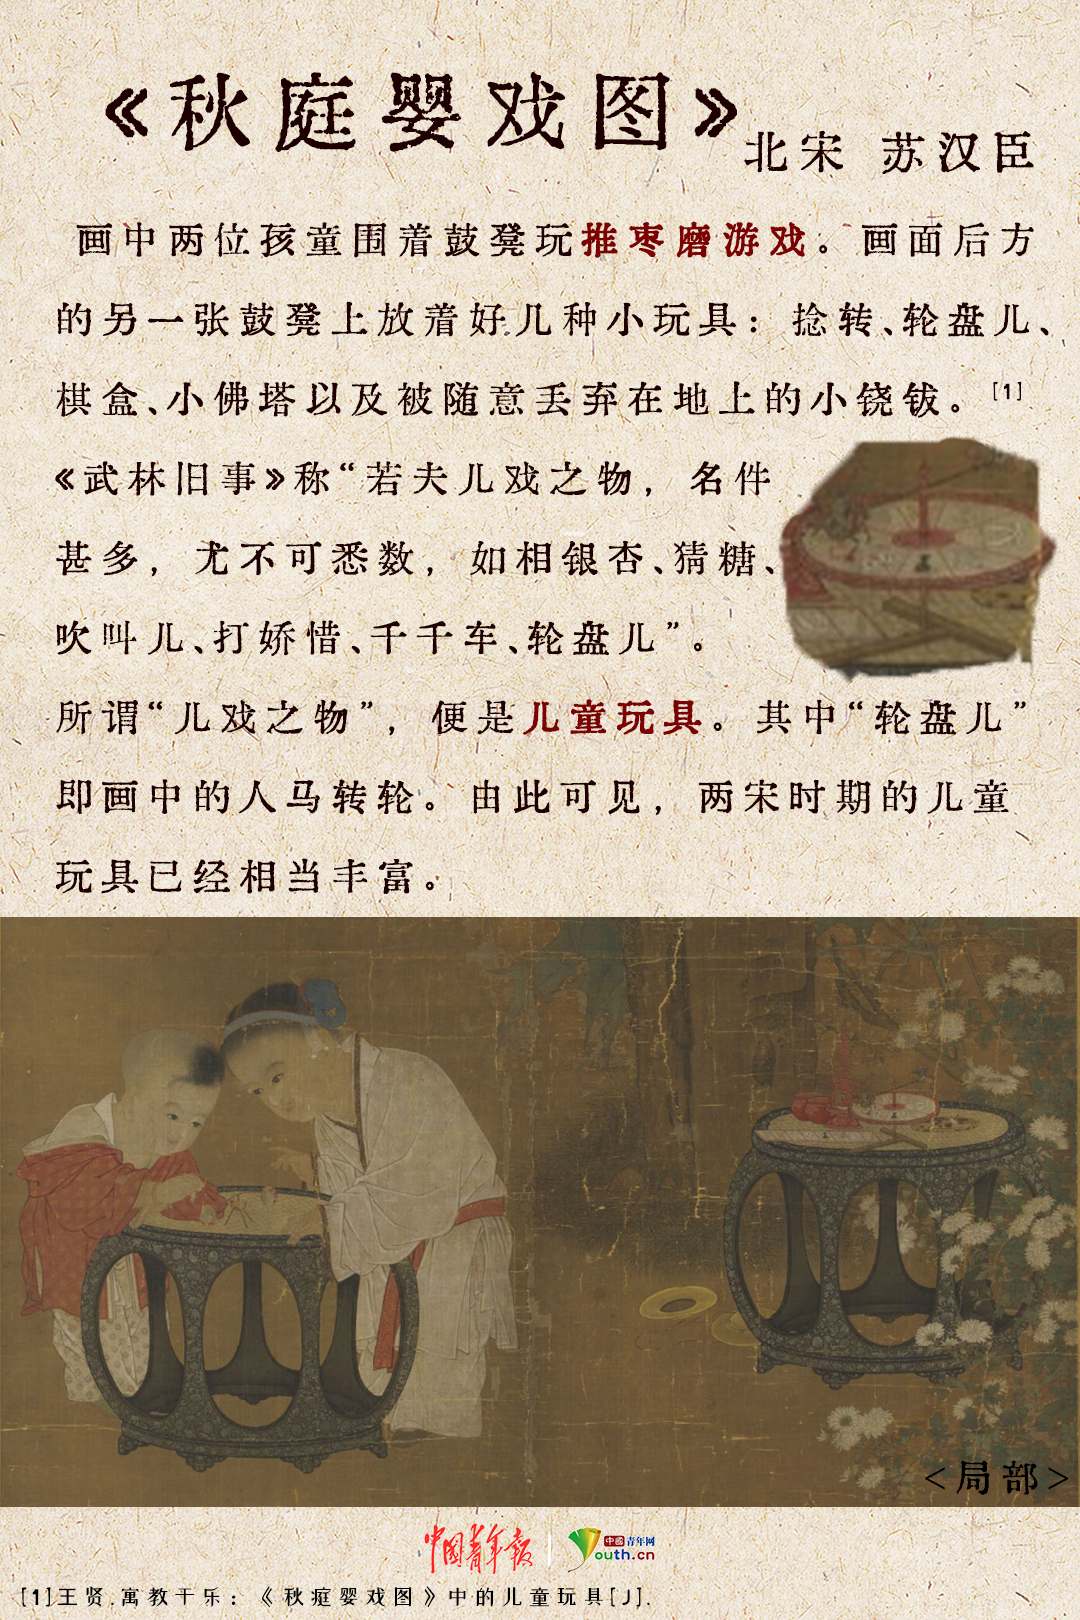 《秋庭婴戏图》
北宋 苏汉臣
画中两位孩童围着鼓凳玩推枣磨游戏。画面后方
的另一张鼓凳上放着好几种小玩具：捻转、轮盘儿、
棋盒、小佛塔以及被随意丢弃在地上的小铙钹。[1]
《武林旧事》称“若夫儿戏之物，名件
甚多，尤不可悉数，如相银杏、猜糖、
吹叫儿、打娇惜、千千车、轮盘儿”。
所谓“儿戏之物”，便是儿童玩具。其中“轮盘儿”
即画中的人马转轮。由此可见，两宋时期的儿童
玩具已经相当丰富。
<局部>
中国青年报
中國青年网
Youth.cn
[1]王贤.寓教于乐：《秋庭婴戏图》中的儿童玩具[J].